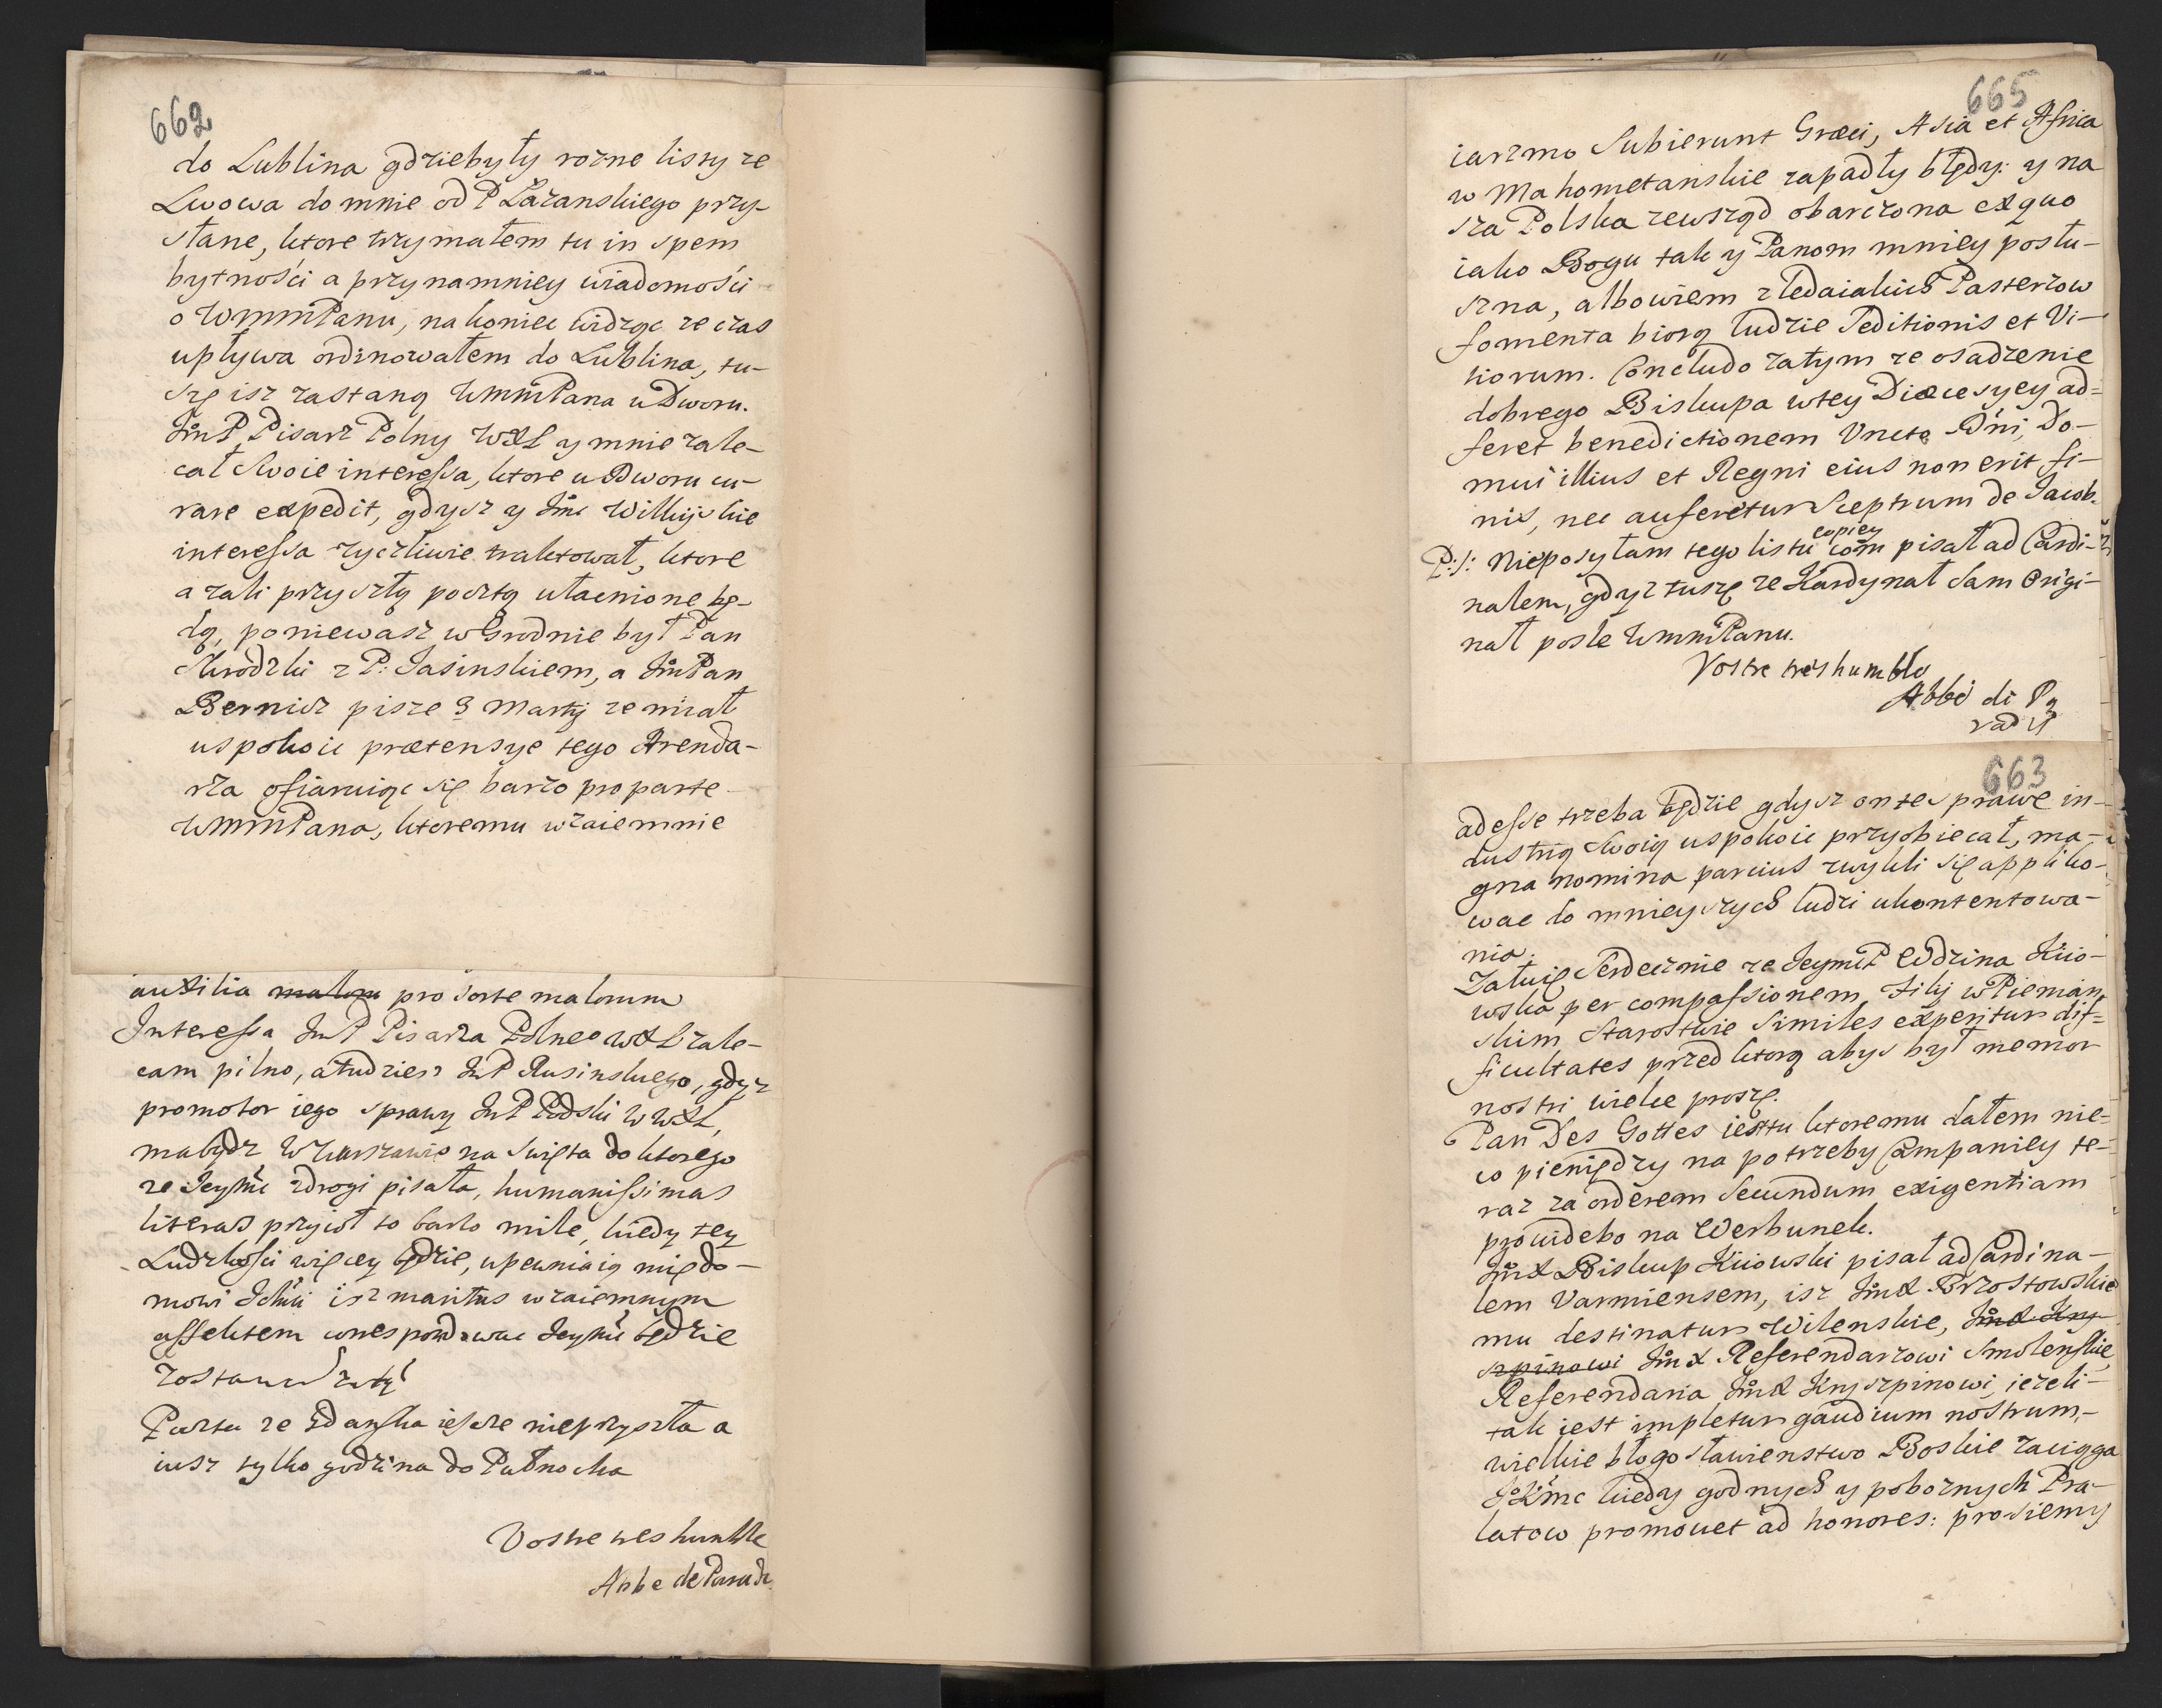 662
do Lublina gdzie były rozne listy ze
Lwowa do mnie od P Łazanskiego przy-
słane, ktore trzymałem tu in spem
bytności a przynamniey wiadomości
o WmmPanu, nakoniec widząc ze czas
upływa ordinowałem do Lublina, tu-
szę isz zastaną WmmPana u Dworu.
JmP Pisarz Polny WXL y mnie zale-
cał swoie interessa, ktore u Dworu cu-
rare expedit, gdysz y Jmc Wilkijskie
interessa zyczliwie traktował, ktore
azali przyszłą pocztą ułacnione bę-
dą, poniewasz w Grodnie był Pan
Skrodzki z P: Jasinskiem, a JmPan
Bernicz pisze 3 Martij ze miał
uspokoic prætensye tego Arenda-
rza ofiaruiąc się barzo pro parte
WmmPana, ktoremu wzaiemnie
auxilia malom pro sorte malorum
Interessa JmP Pisarza Polneo WXL zale-
cam pilno, a tudziesz JmP Rusinskiego, gdyz
promotor iego sprawy JmP Podski W WXL,
ma bydz w Warszawie na Swięta do ktorego
ze Jeymć z drogi pisała, humanissimas
literas przyioł to barzo mile, kiedy tey
Ludzkości więcey będzie, upewniaią mię do-
mowi Ichmci isz maritus wzaiemnym
affektem correspondowac Jeymć będzie
Poczta ze Gdanska iescze nieprzyszła a
iusz tylko godzina do Pułnocka
Vostre tres humble
Abbe de Parady
665
iarzmo Subierunt Græci, Asia et Africa
w Mahometanskie zapadły błędy: y na
sza Polska zewsząd obarczona ex quo
iako Bogu tak y Panom mniey posłu-
szna, albowiem z ledaiakich Pasterzow
fomenta biorą ludzie Seditionis et Vi-
tiorum. Concludo zatym ze osadzenie
dobrego Biskupa w tey Diæcesyey ad=
feret benedictionem Uncto Dni, Do-
mui illius et Regni eius non erit fi-
nis, nec auferetur Sceptrum de Jacob.
P:S: Nieposyłam tego listu copiey com pisał ad Cardi-
nalem, gdyz tuszę ze Kardynał Sam Origi-
nał posle WmmPanu.
Vostre tres humble
Abbé di Pa
radis
663
adesse trzeba będzie gdysz on te sprawe in-
dustrią swoią uspokoic przyobiecał, ma-
gna nomina parcius zwykli się appliko-
wac do mnieyszych ludzi ukontentowa-
nia.
Załuię Serdecznie ze JeymP Wdzina Kiio-
wska per compassionem filij w Pieman
skim Starostwie similes experitur dif=
ficultates przed ktorą abys był memor
nostri wielce proszę.
Pan Des Gottes iest tu ktoremu dałem nie=
co pieniędzy na potrzeby Campaniey te-
raz za orderem secundum exigentiam
prouidebo na Werbunek.
JmX Biskup Kiiowski pisał ad Cardina-
lem Varmiensem, isz JmX Brzostowskie
mu destinatur Wilenskie, JmX Kry-
szpinowi JmX Referendarzowi Smolenskie,
Referendaria JmX Kryszpinowi, iezeli-
tak iest impletur gaudium nostrum,-
wielkie błogosławienstwo Boskie zaciąga
JKmc kiedy godnych y poboznych Præ-
latow promouet ad honores: prosiemy